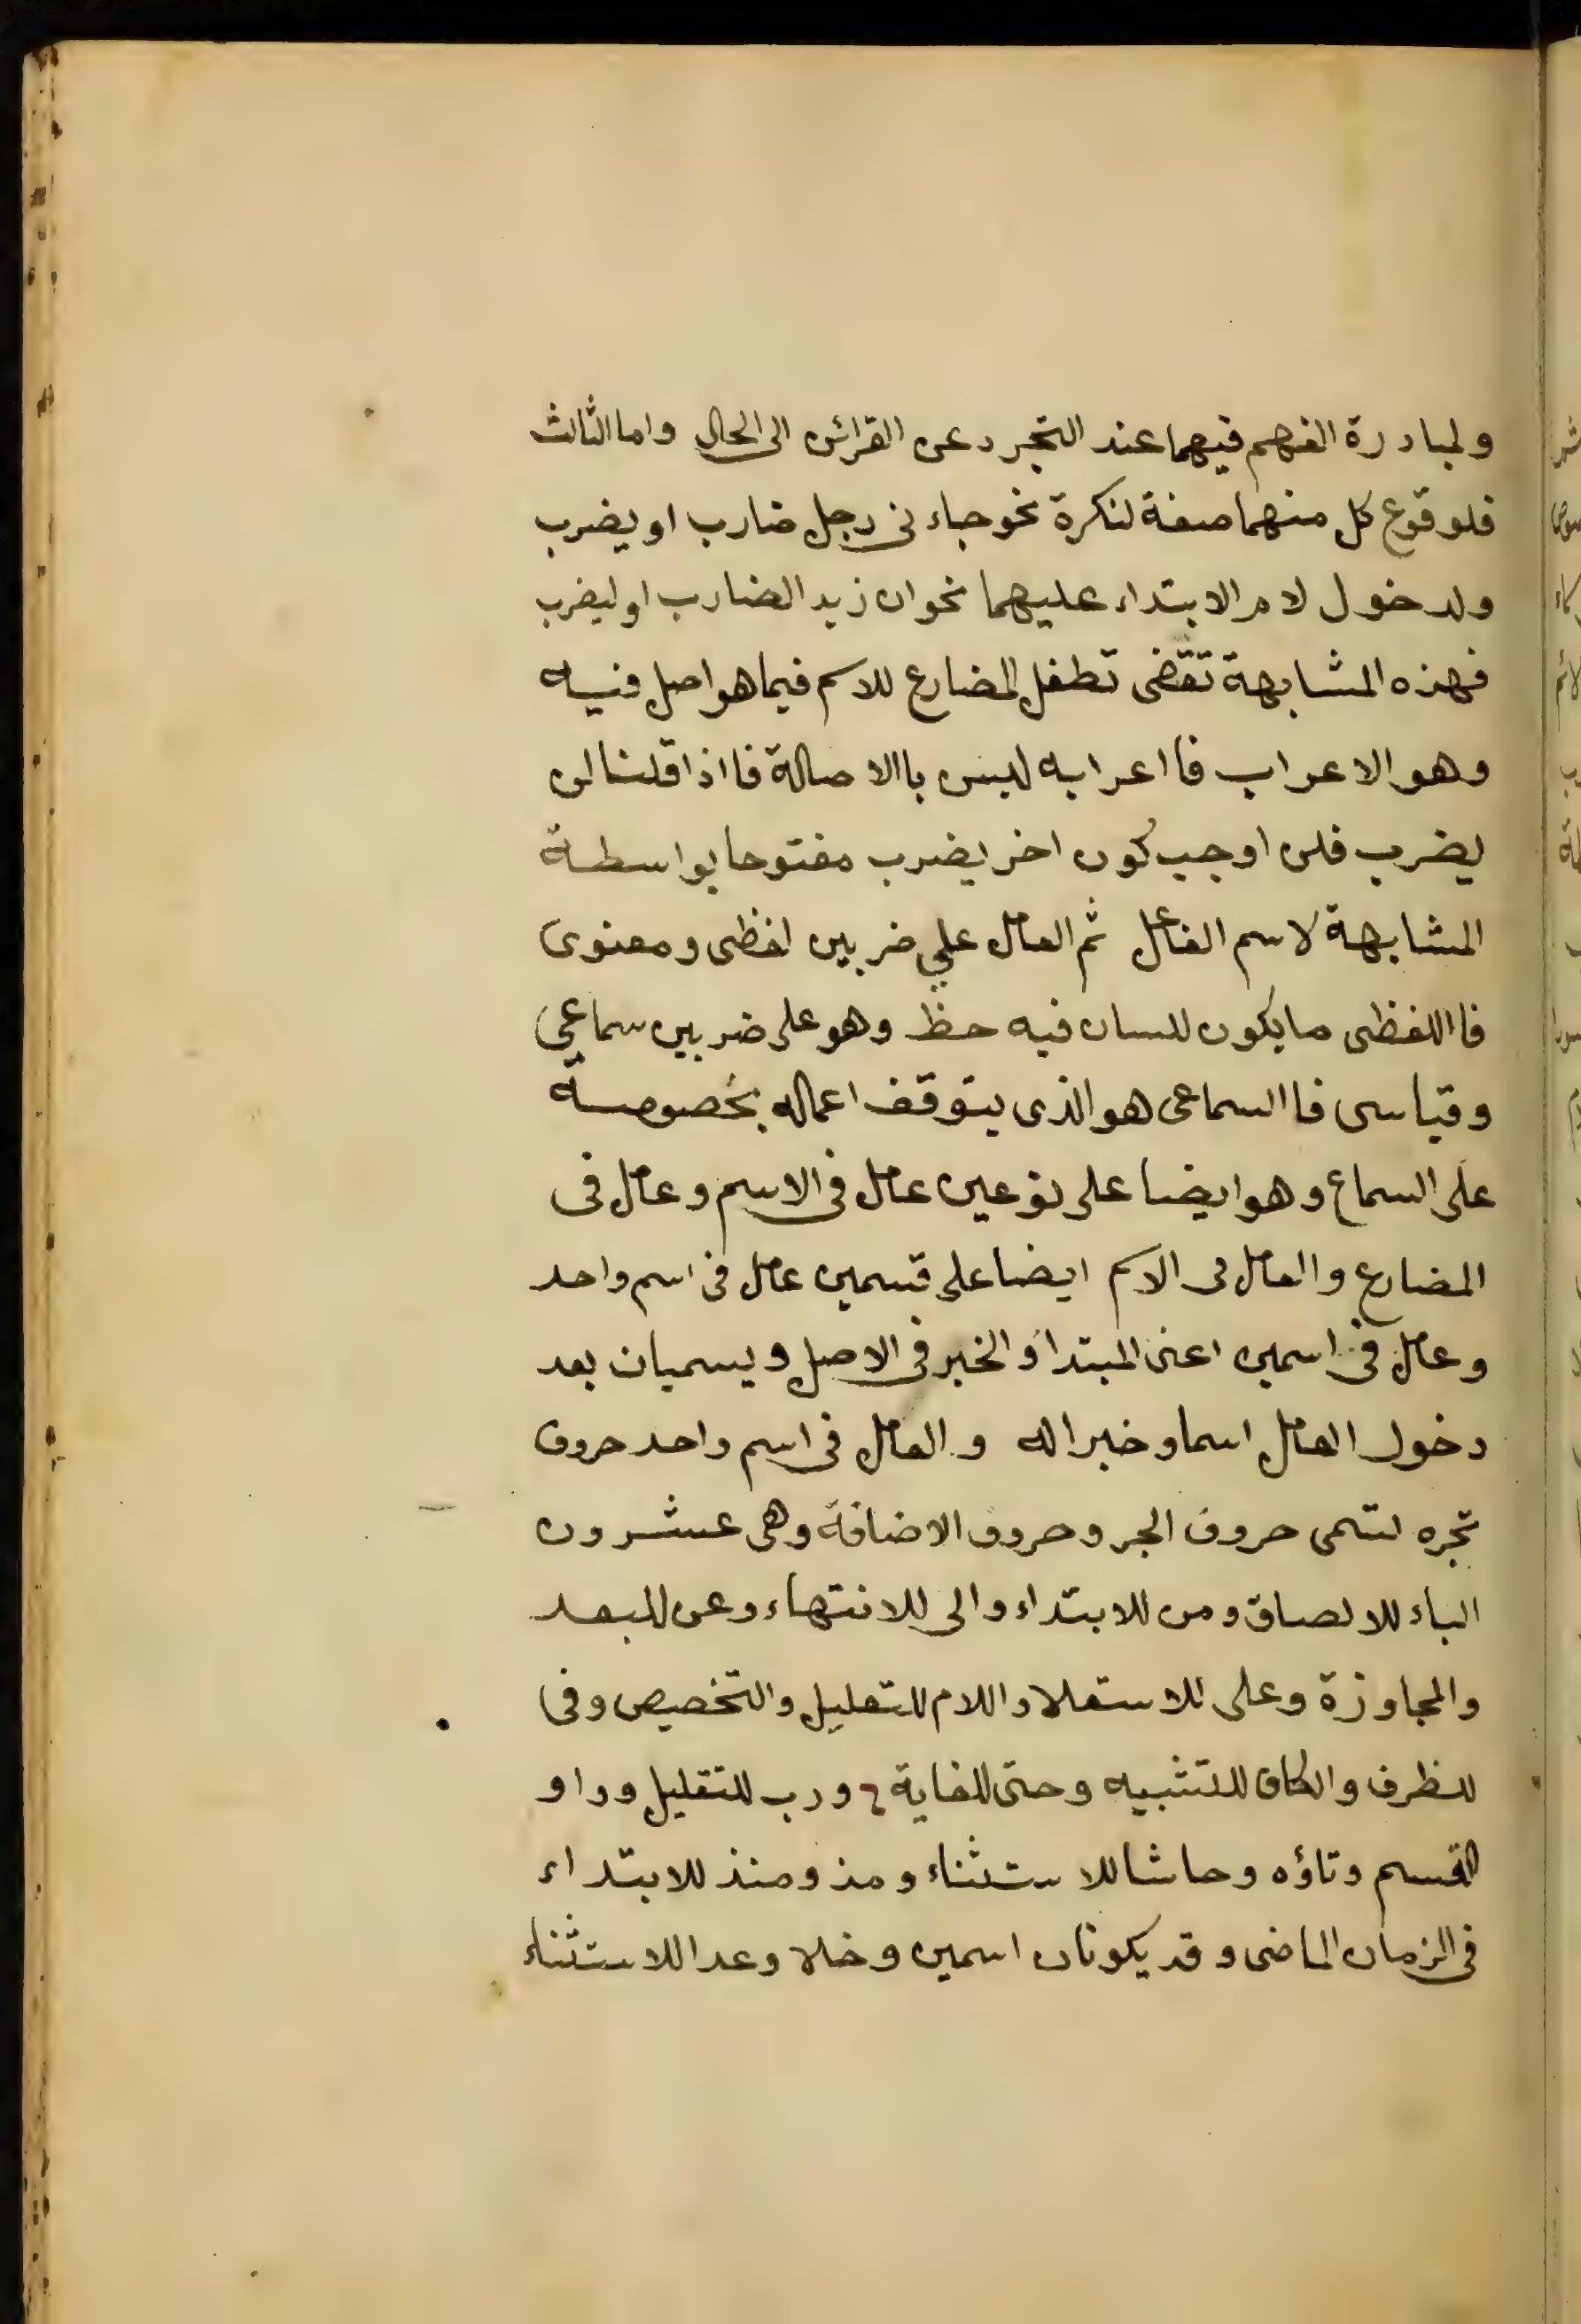 ولمبادرة الفهم فيهما عند التجرد عن القرائن الى الحال واما الثالث
فلوقوع كل منهما صفة لنكرة نحو جاءنى رجل ضارب او يضرب
ولدخول لام الابتداء عليهما نحو ان زيد الضارب او ليضرب
فهذه المشابهة تقتضى تطفل المضارع للاسم فيما هو اصل فيه
وهو الاعراب فااعرابه ليس باالاصالة فااذا قلنا لن
يضرب فلن اوجب كون اخر يضرب مفتوحا بواسطة
المشابهة لاسم الفاعل ثم العامل على ضربين لفظى ومعنوى
فااللفظى ما يكون للسان فيه حظ وهو على ضربين سماعى
وقياسى فاالسماعى هو الذى يتوقف اعماله بخصوصه
على السماع وهو ايضا على نوعين عامل فى الاسم وعامل فى
المضارع والعامل فى الاسم ايضا على قسمين عامل فى اسم واحد
وعامل فى اسمين اعنى المبتدا والخبر فى الاصل ويسميان بعد
دخول العامل اسما وخبرا له والعامل فى اسم واحد حروف
تجره تسمى حروف الجر وحروف الاضافة وهى عشرون
الباء للالصاق ومن للابتداء والى للانتهاء وعن للبعد
والمجاوزة وعلى للاستعلا واللام للتعليل والتخصيص وفى
للظرف والكاف للتشبيه وحتى للغاية ورب للتقليل وواو
القسم وتاؤه وحاشا للاستثناء ومذ ومنذ للابتداء
فى الزمان الماضى وقد يكونان اسمين وخلا وعدا للاستثناء